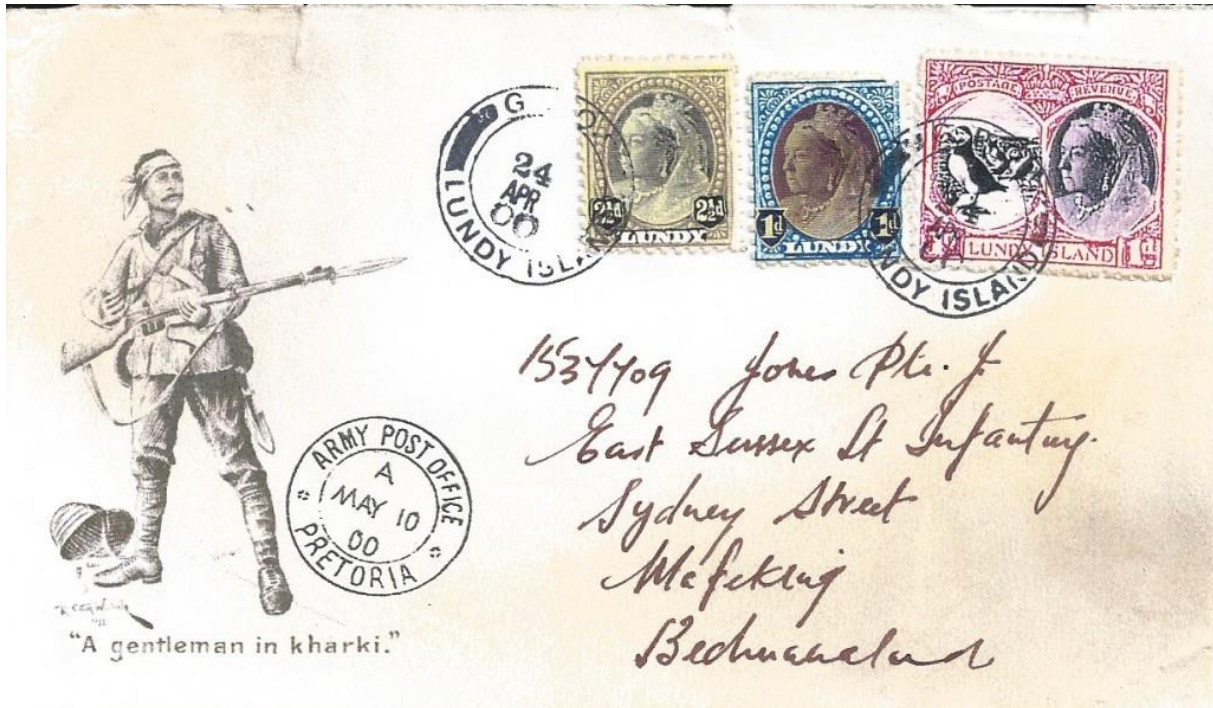 G
24
APR
00
LUNDY ISLAN
2½d 2½d
LUNDY
1d 1d
LUNDY
POSTAGE REVENUE
1d LUNDY ISLAND 1d
NDY ISLAND
Jones Pte. J.
East Sussex Lt Infantry.
Sydney Street
Mafeking
Bechuanaland
ARMY POST OFFICE
A
MAY 10
00
PRETORIA
"A gentleman in kharki."